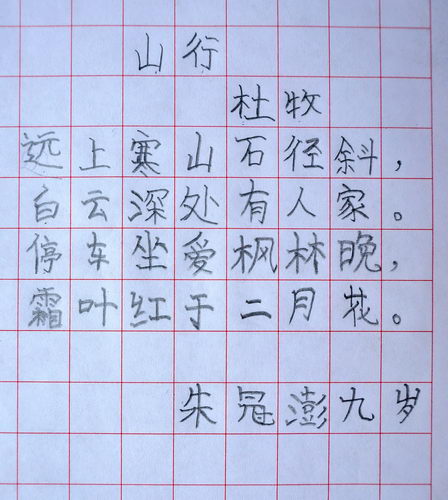 山行
杜牧
远上寒山石径斜，
白云深处有人家。
停车坐爱枫林晚，
霜叶红于二月花。
朱冠澎九岁